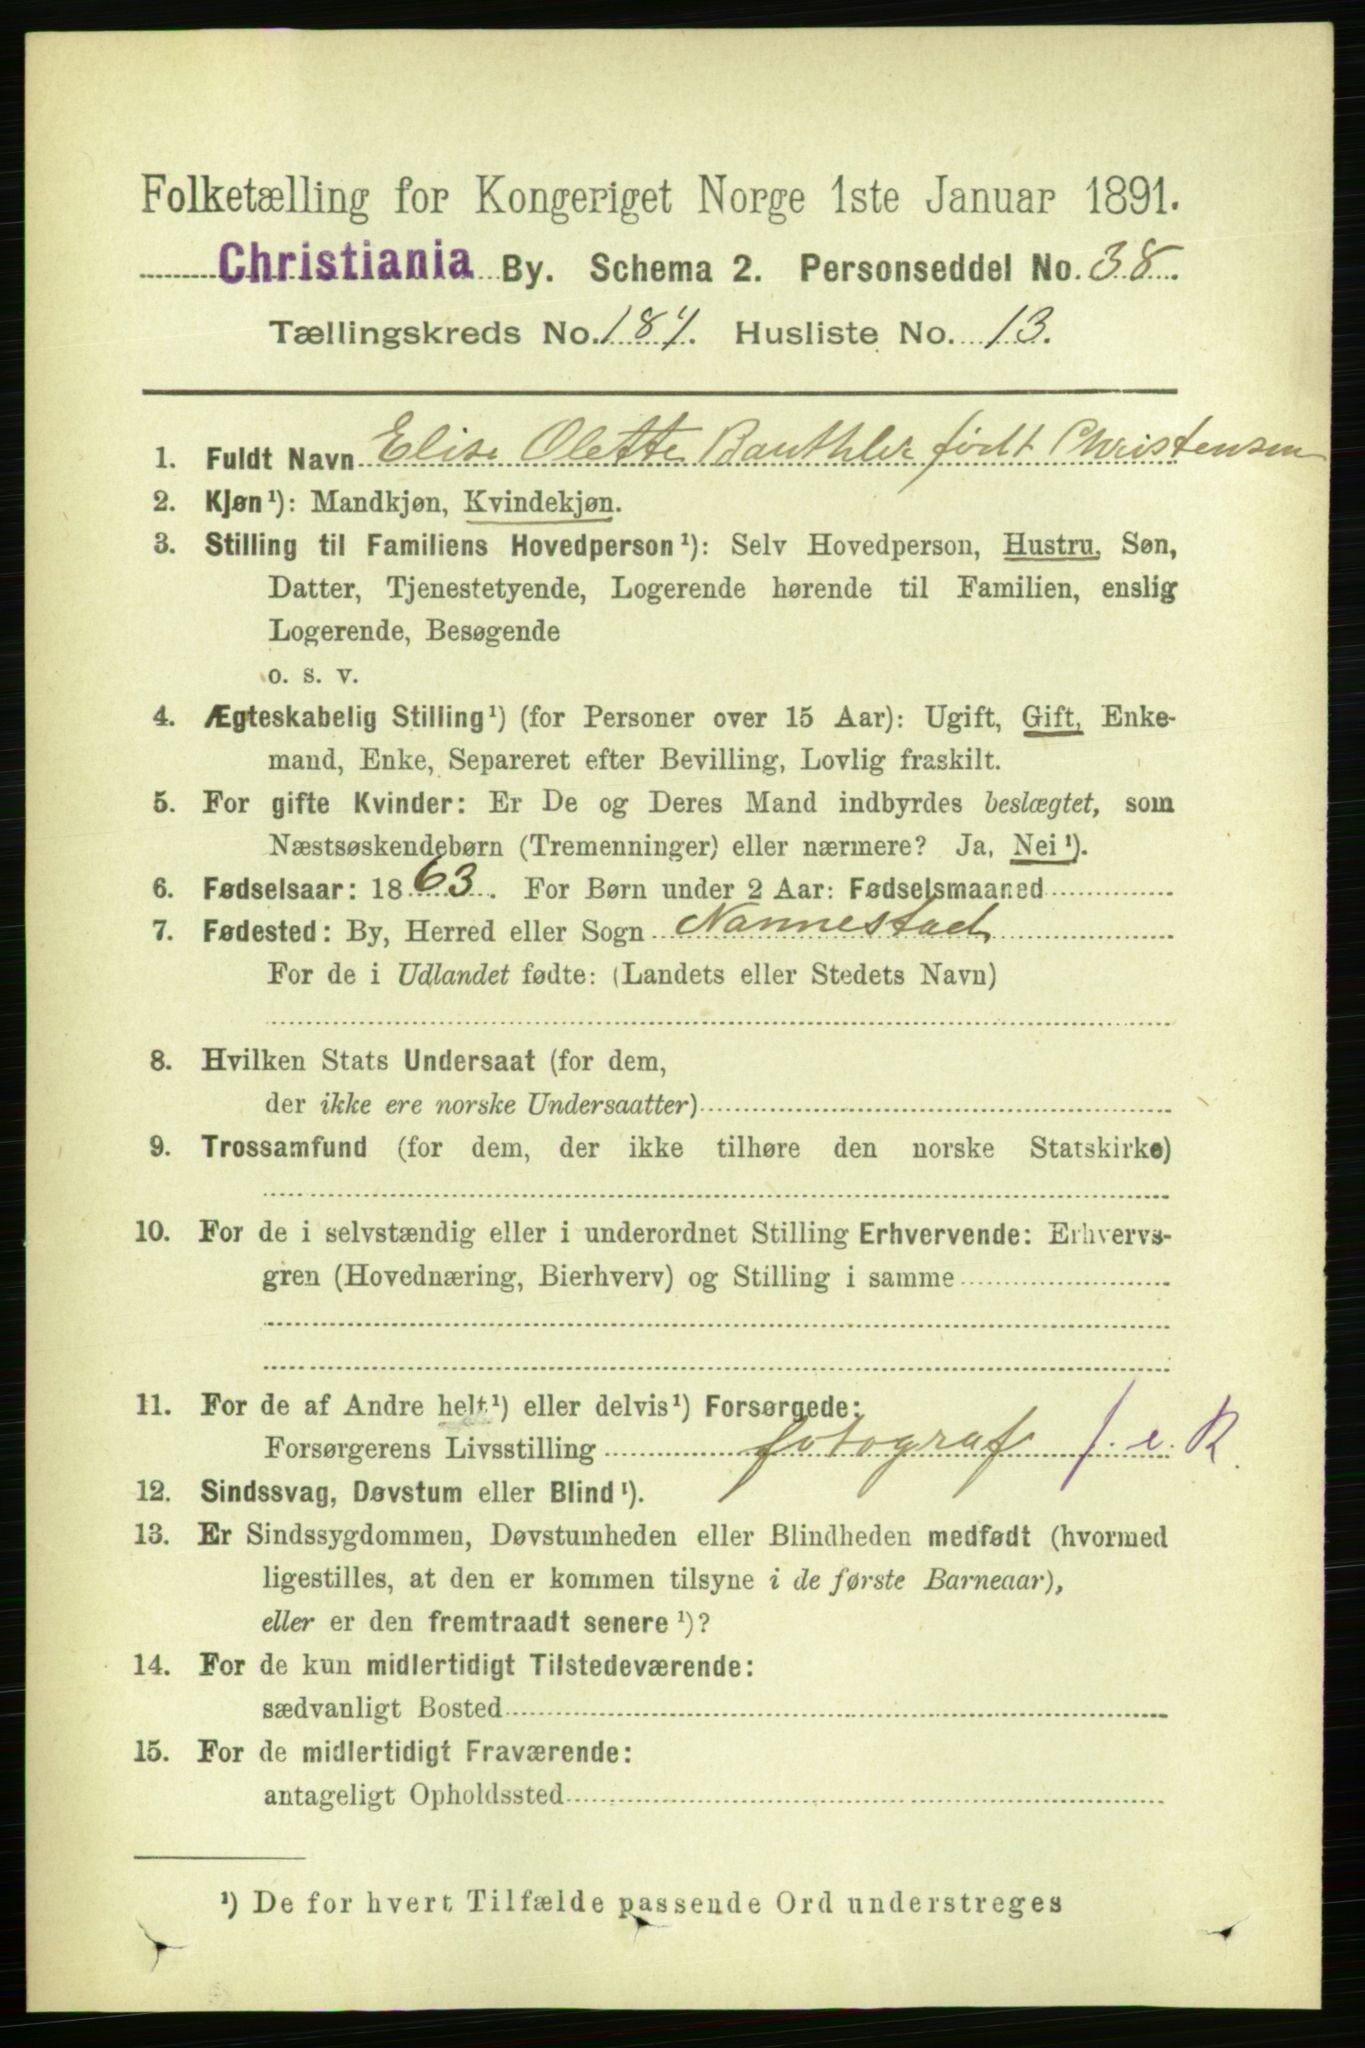 Folketælling for Kongeriget Norge 1ste Januar 1891.
Christiania By. Schema 2. Personseddel No. 38.
Tællingskreds No. 187. Husliste No. 13.
1. Fuldt Navn Elise Olette Bauthler født Christensen
2. Kjøn¹): Mandkjøn, Kvindekjøn.
3. Stilling til Familiens Hovedperson¹): Selv Hovedperson, Hustru, Søn,
Datter, Tjenestetyende, Logerende hørende til Familien, enslig
Logerende, Besøgende
o. s. v.
4. Ægteskabelig Stilling¹) (for Personer over 15 Aar): Ugift, Gift, Enke-
mand, Enke, Separeret efter Bevilling, Lovlig fraskilt.
5. For gifte Kvinder: Er De og Deres Mand indbyrdes beslægtet, som
Næstsøskendebørn (Tremenninger) eller nærmere? Ja, Nei¹).
6. Fødselsaar: 1863. For Børn under 2 Aar: Fødselsmaaned
7. Fødested: By, Herred eller Sogn Nannestad
For de i Udlandet fødte: (Landets eller Stedets Navn)
8. Hvilken Stats Undersaat (for dem,
der ikke ere norske Undersaatter)
9. Trossamfund (for dem, der ikke tilhøre den norske Statskirke)
10. For de i selvstændig eller i underordnet Stilling Erhvervende: Erhvervs-
gren (Hovednæring, Bierhverv) og Stilling i samme
11. For de af Andre helt¹) eller delvis¹) Forsørgede:
Forsørgerens Livsstilling fotograf f. e. R.
12. Sindssvag, Døvstum eller Blind¹).
13. Er Sindssygdommen, Døvstumheden eller Blindheden medfødt (hvormed
ligestilles, at den er kommen tilsyne i de første Barneaar),
eller er den fremtraadt senere¹)?
14. For de kun midlertidigt Tilstedeværende:
sædvanligt Bosted
15. For de midlertidigt Fraværende:
antageligt Opholdssted
¹) De for hvert Tilfælde passende Ord understreges